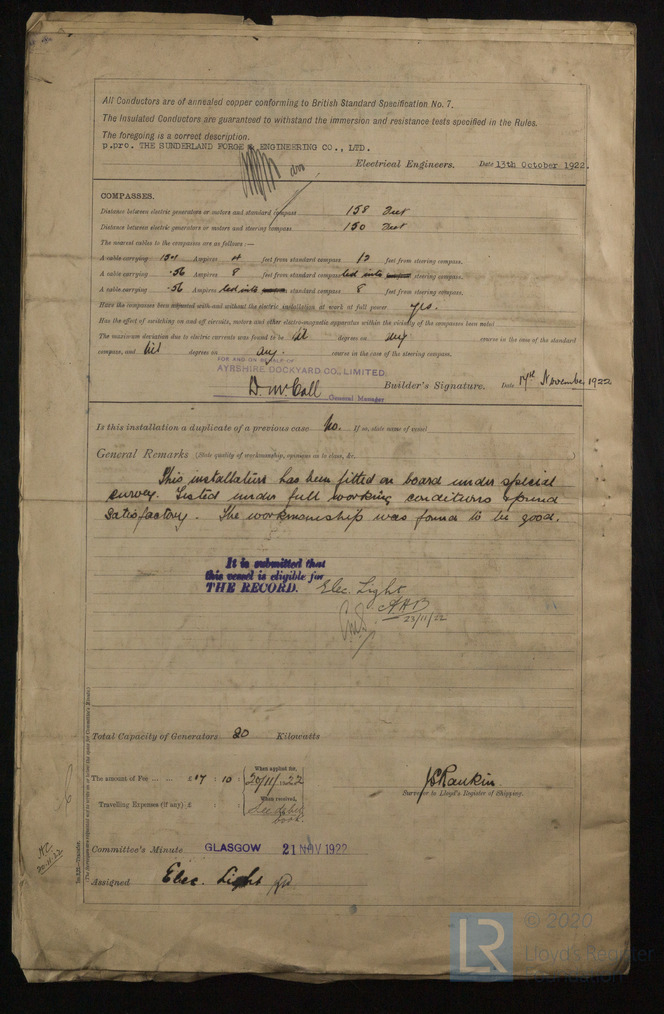 All Conductors are of annealed copper conforming to British Standard Specification No. 7.
The Insulated Conductors are guaranteed to withstand the immersion and resistance tests specified in the Rules.
The foregoing is a correct description.
p.pro. THE SUNDERLAND FORGE & ENGINEERING CO., LTD.
Electrical Engineers. Date 13th October 1922.
COMPASSES.
Distance between electric generators or motors and standard compass 158 Feet
Distance between electric generators or motors and steering compass 150 Feet
The nearest cables to the compasses are as follows:—
A cable carrying Ampères 4 feet from standard compass 12 feet from steering compass.
A cable carrying .56 Ampères 8 feet from standard compass led into steering compass.
A cable carrying .56 Ampères led into standard compass 8 feet from steering compass.
Have the compasses been adjusted with and without the electric installation at work at full power yes.
Has the effect of switching on and off circuits, motors and other electro-magnetic apparatus within the vicinity of the compasses been noted
The maximum deviation due to electric currents was found to be Nil degrees on any course in the case of the standard
compass, and Nil degrees on any. course in the case of the steering compass.
FOR AND ON BEHALF OF
AYRSHIRE DOCKYARD CO., LIMITED.
D. McCall Builder's Signature. Date 17th November 1922
General Manager
Is this installation a duplicate of a previous case No. If so, state name of vessel
General Remarks (State quality of workmanship, opinions as to class, &c.)
This installation has been fitted on board under special
survey. Tested under full working conditions & found
satisfactory. The workmanship was found to be good.
It is submitted that
this vessel is eligible for
THE RECORD. Elec. Light
AHB
23/11/22
Total Capacity of Generators 20 Kilowatts
The amount of Fee ... ... £ 17 : 10 : When applied for, 20/11/22
Travelling Expenses (if any) £ : : When received,
J S Rankin
Surveyor to Lloyd's Register of Shipping.
Committee's Minute GLASGOW 21 NOV 1922
Assigned Elec. Light
20.11.22
LR © 2020
Lloyd's Register
Foundation